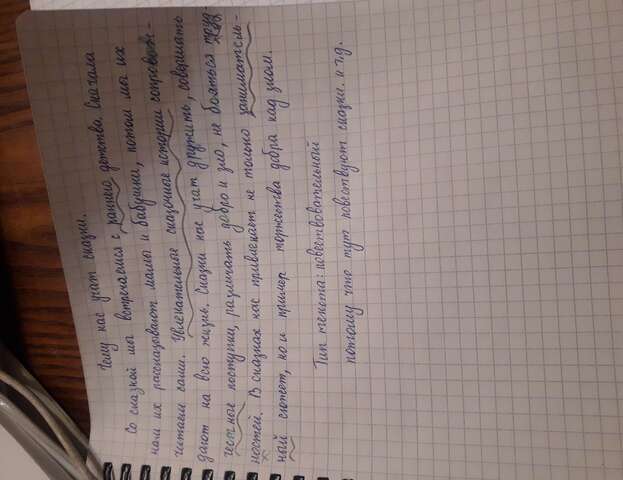 Чему нас учат сказки.
Со сказкой мы встречаемся с раннего детства. Сначала
нам их рассказывают мамы и бабушки, потом мы их
читаем сами. Увлекательные сказочные истории сопрово-
дают на всю жизнь. Сказки нас учат дружить, совершать
честные поступки, различать добро и зло, не бояться труд
ностей. В сказках нас привлекает не только заниматель-
ный сюжет, но и пример торжества добра над злом.
Тип текста: повествовательный
потому что тут повествуют сказки. и т.д.